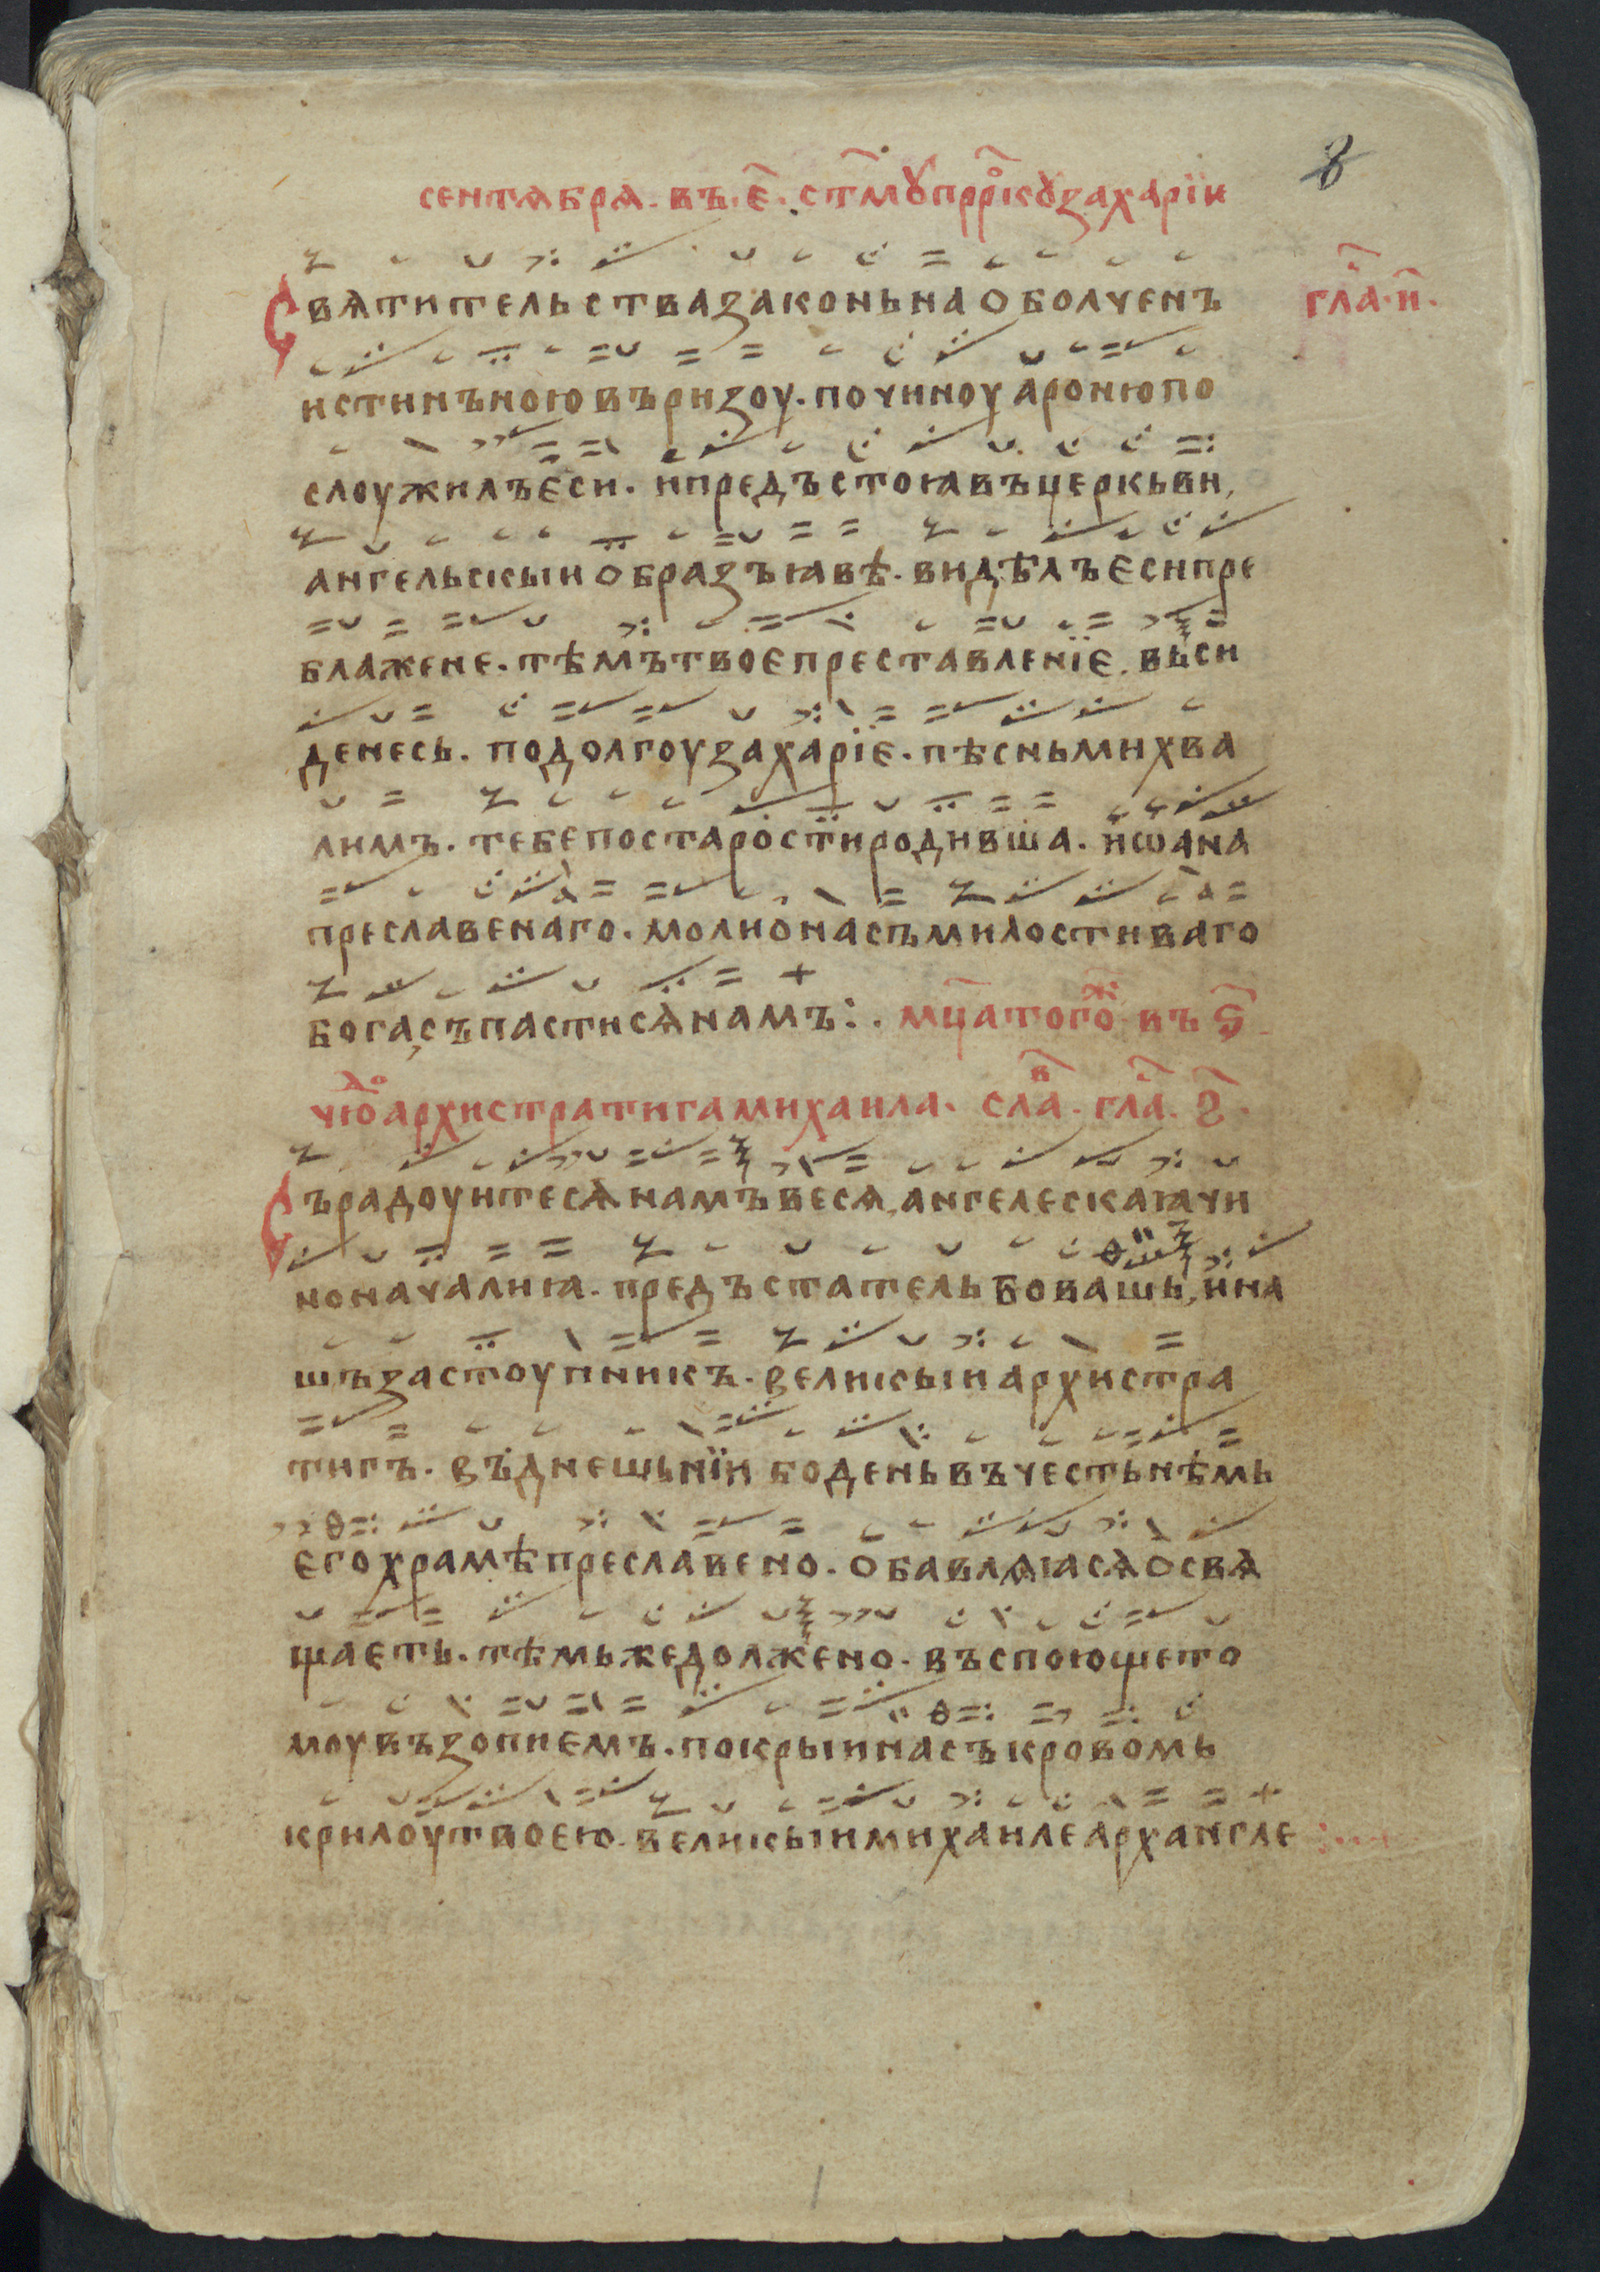 8
сентѧбрѧ. въ.е҃. ст҃мꙋпррⷪ҇кꙋзахарїи
Свѧтительствазаконьнаоболченъ
гла҃.и҃.
истинъноювъризоу.починоуаронюпо
слоужилъеси.ипредъстоꙗвъцеркьви,
ангельскыиобразъꙗвѣ.видѣлъесипре
блажене.тѣмътвоепреставленїе.вьси
денесь.подолгоузахарїе.пѣсньмихва
лимъ.тебепостаростиродивша.иѡана
преславенаго.молионасъмилостиваго
богасъпастисѧнамъ:. мц҃атогоⷤ.въ ѕ҃
чюⷣоархистратигамихаила. слаⷡ. гла҃. в҃.
Сърадоуитесѧнамъвесѧ,ангелескаꙗчи
ноначалиꙗ.предъстательбовашь,ина
шъзастоупникъ.великыиархистра
тигъ.въднешьнїибоденьвъчестьнѣмь
егохрамѣпреславено.обавлѧꙗсѧосвѧ
щаеть.тѣмьжедолжено.въспоющето
моувъзопиемъ.покрыинасъкровомь
крилоутвоею.великыимихаилеархангле